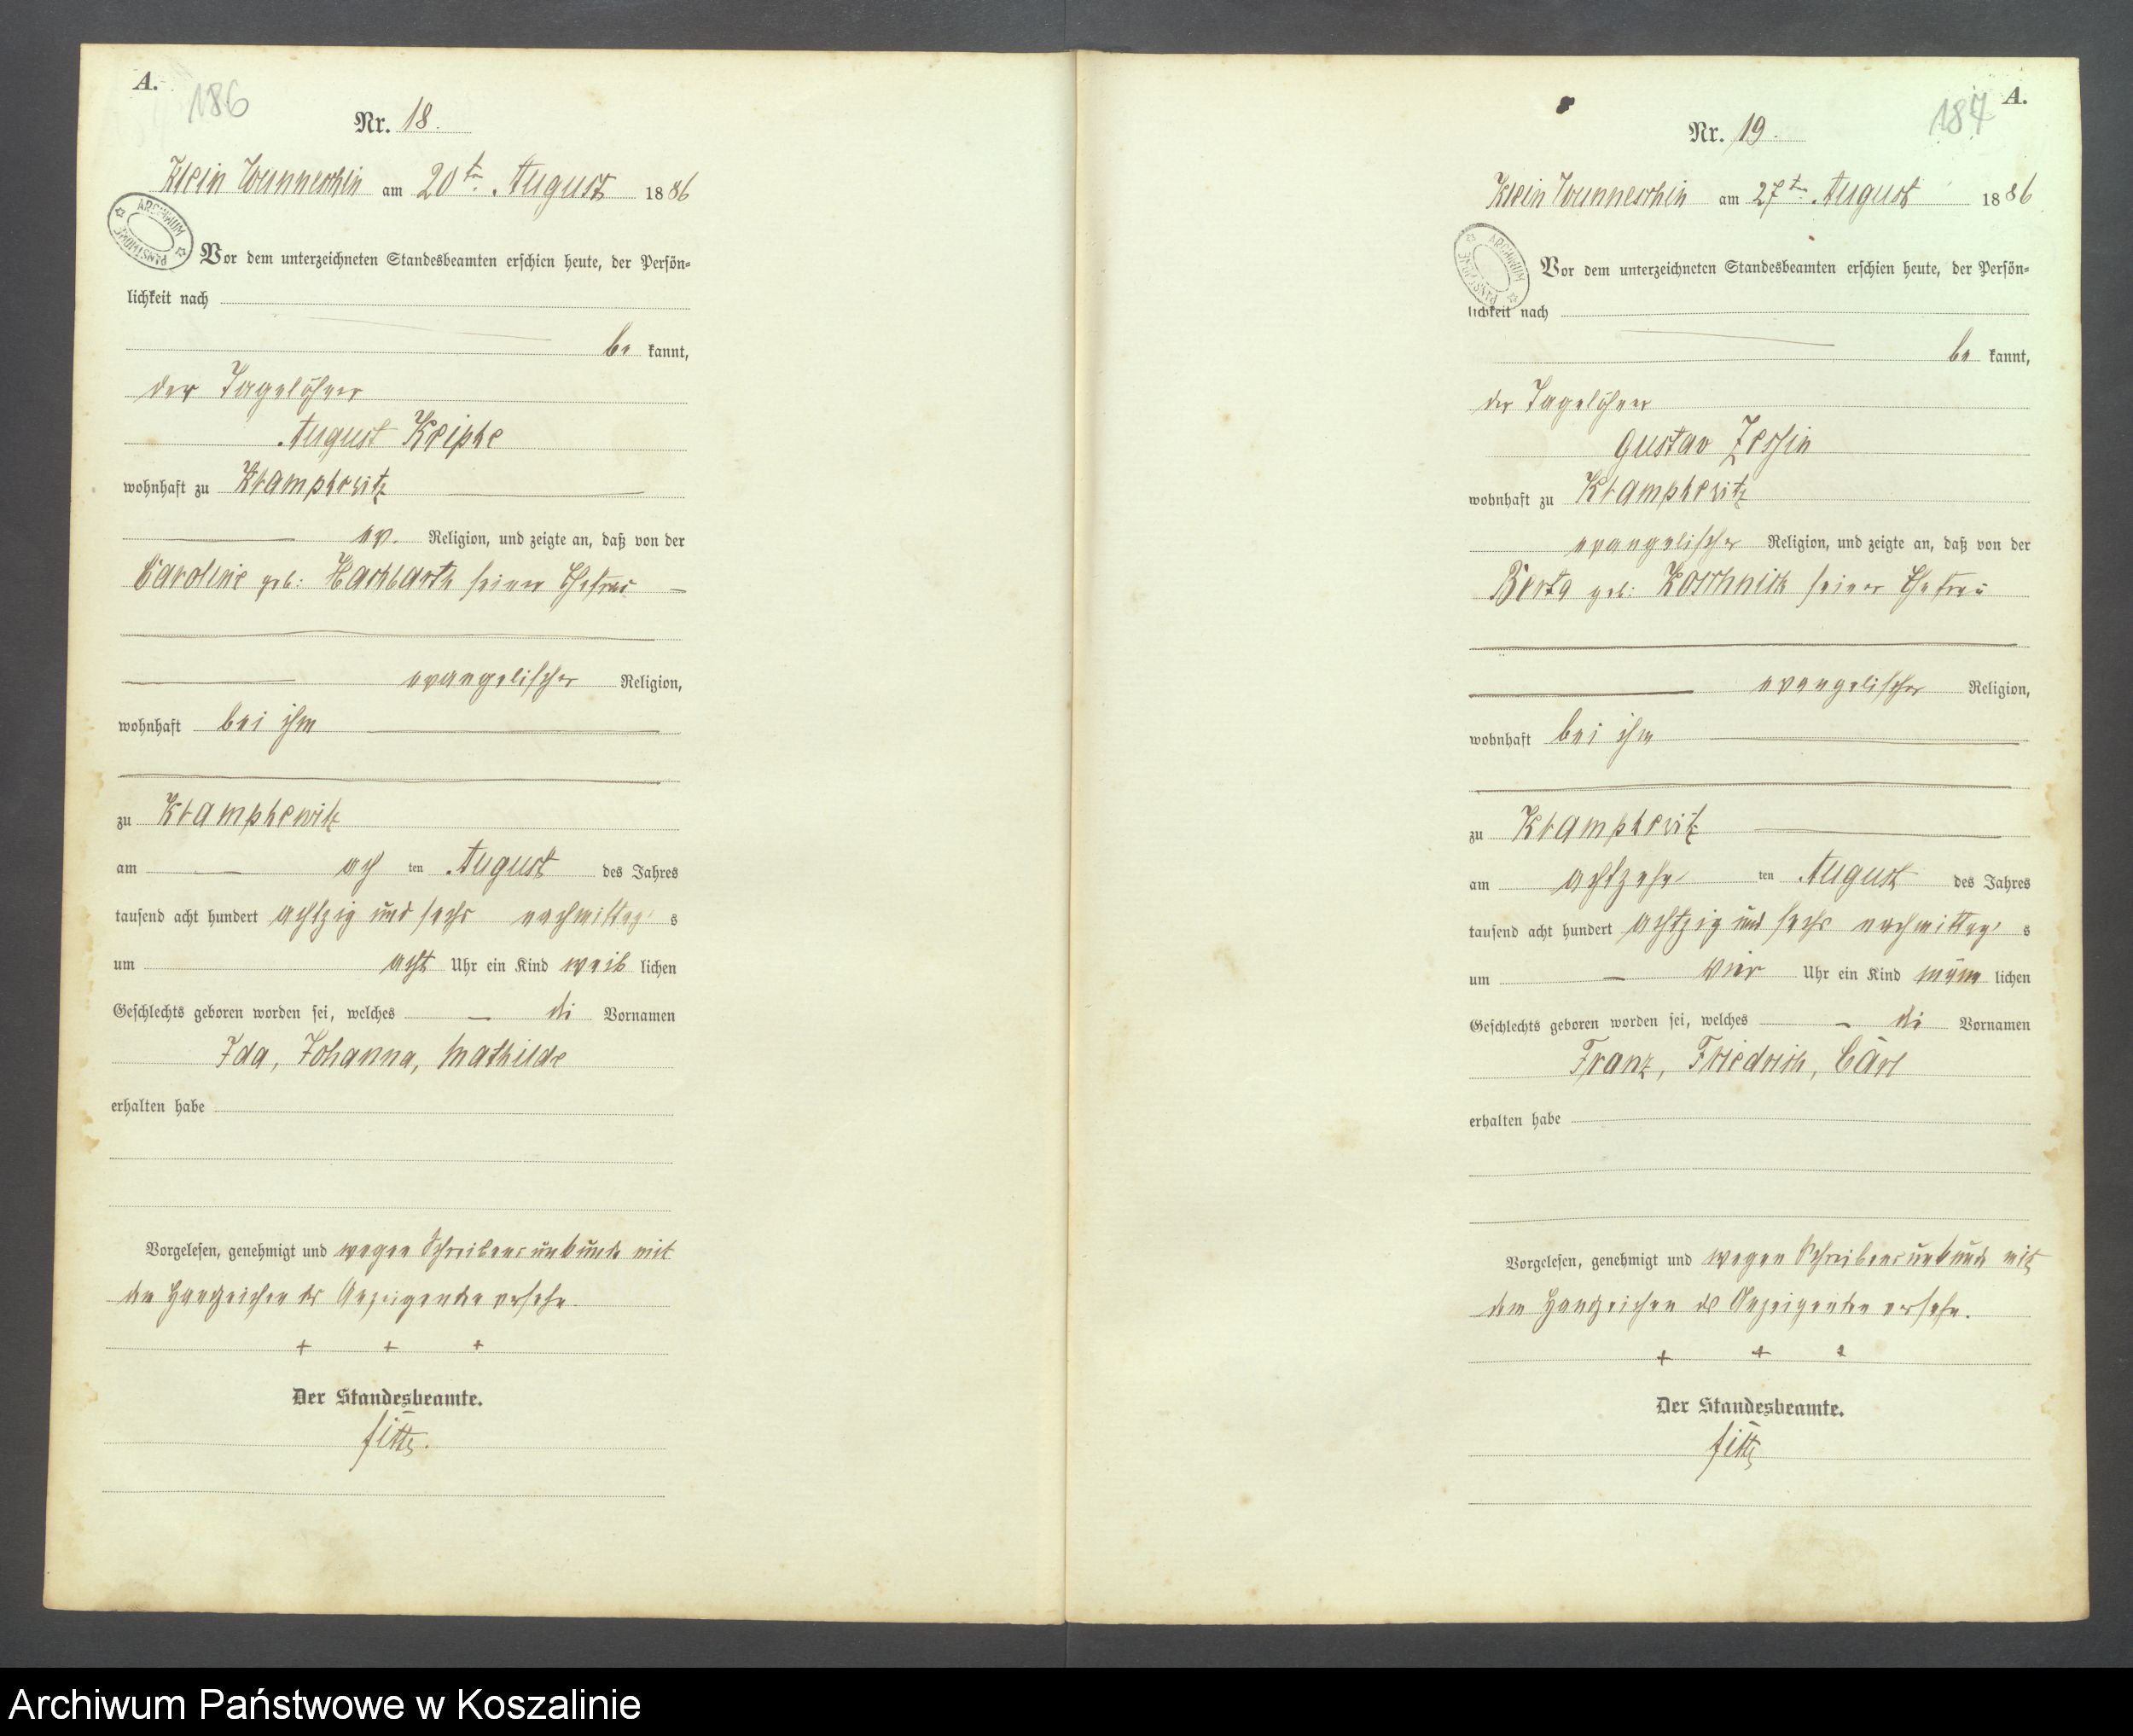 A.
186
Nr. 18.
Klein Wunneschin am 20t. August 1886
ARCHIWUM PAŃSTWOWE
Vor dem unterzeichneten Standesbeamten erschien heute, der Persön-
lichkeit nach
be kannt,
der Tagelöhner
August Kripke
wohnhaft zu Krampkewitz
ev. Religion, und zeigte an, daß von der
Caroline geb: Hackbarth seiner Ehefrau
evangelischer Religion,
wohnhaft bei ihm
zu Krampkewitz
am ach ten August des Jahres
tausend acht hundert achtzig und sechs nachmittag s
um acht Uhr ein Kind weib lichen
Geschlechts geboren worden sei, welches die Vornamen
Ida, Johanna, Mathilde
erhalten habe
Vorgelesen, genehmigt und wegen Schreibensunkunde mit
den Handzeichen des Anzeigenden versehn.
+ + +
Der Standesbeamte.
A.
187
Nr. 19.
Klein Wunneschin am 27t. August 1886
ARCHIWUM PAŃSTWOWE
Vor dem unterzeichneten Standesbeamten erschien heute, der Persön-
lichkeit nach
be kannt,
der Tagelöhner
Gustav Zessin
wohnhaft zu Krampkewitz
evangelischer Religion, und zeigte an, daß von der
Berta geb: Koschnick seiner Ehefrau
evangelischer Religion,
wohnhaft bei ihm
zu Krampkewitz
am achtzehn ten August des Jahres
tausend acht hundert achtzig und sechs nachmittag s
um vier Uhr ein Kind männ lichen
Geschlechts geboren worden sei, welches die Vornamen
Franz, Friedrich, Carl
erhalten habe
Vorgelesen, genehmigt und wegen Schreibensunkunde mit
den Handzeichen des Anzeigenden versehn.
+ + +
Der Standesbeamte.
Archiwum Państwowe w Koszalinie